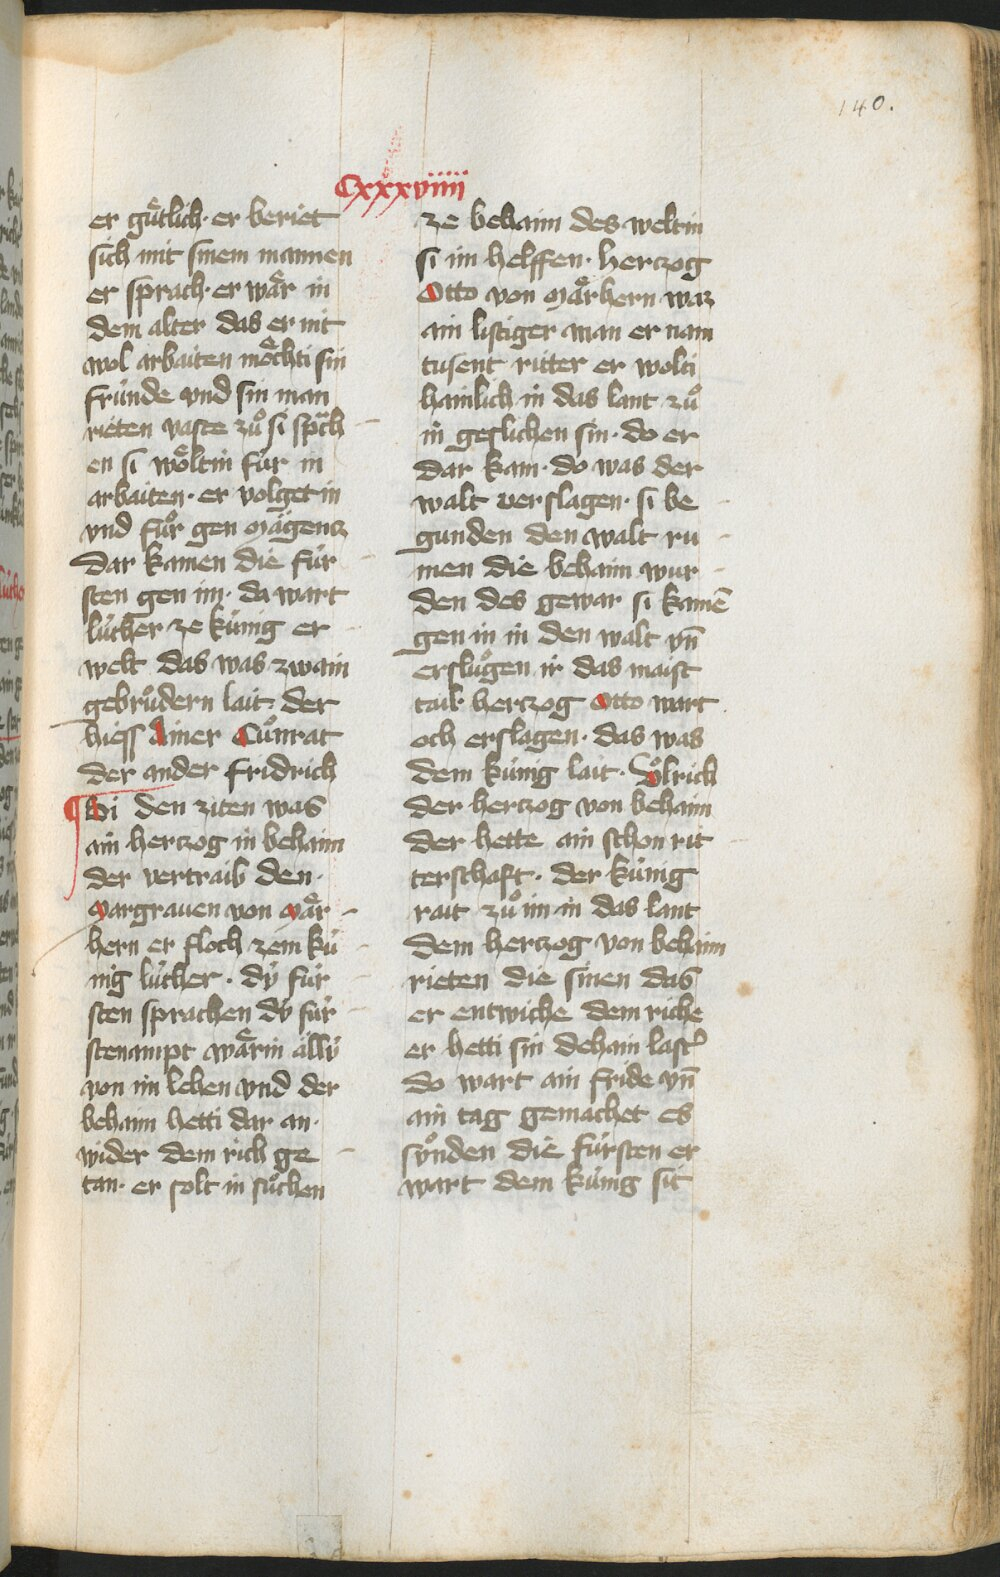 140.
Cxxxviiii
er guͤtlich · er beriet
sich mit sinem mannen
er sprach · er waͤr in
dem alter das er nit
wol arbaiten moͤchti sin
fruͤnde vnd sin man
rieten vaste zuͦ si spͣch
en si woͤltin fuͤr in
arbaiten · er volget in
vnd fuͦr gen Maͤgencz
dar kamen die fuͤr
sten gen im · da wart
luͤther ze kuͤnig er
welt das was zwain
gebruͦdern lait · der
hiess Ainer Cuͦnrat
der ander fridrich
Bi den ziten was
ain herczog in behaim
der vertraib den ·
Margrauen von Maͤr
hern er floch zem kuͤ
nig luͤther · dÿ fuͤr
sten sprachen dÿ fuͤr
stenampt waͤrin aͤllÿ
von im lehen vnd der
behaim hetti dar an ·
wider dem rich ge
tan · er solt in suͦchen
ze behaim des weltin
si im helffen · herczog
Otto von Maͤrhern waz
ain listiger man er nam
tusent ritter er wolti
hainlich in das lant zuͦ
in geslichen sin · do er
dar kam · do was der
walt verslagen · si be
gunden den walt ru
men die behaim wur
den des gewar si kamē
gen in in den walt vn̄
ersluͦgen ir das maist
tail herczog Otto wart
och erslagen · das was
dem kuͤnig lait · Voͧlrich
der herczog von behaim
der hette ain schon rit
terschaft · der kuͤnig
rait zuͦ im in das lant
dem herczog von behaim
rieten die sinen das
er entwiche dem riche
er hetti sin dehain last᷑
do wart ain fride vn̄
ain tag gemachet es
syͦnden die fuͤrsten er
wart dem kuͤnig sit